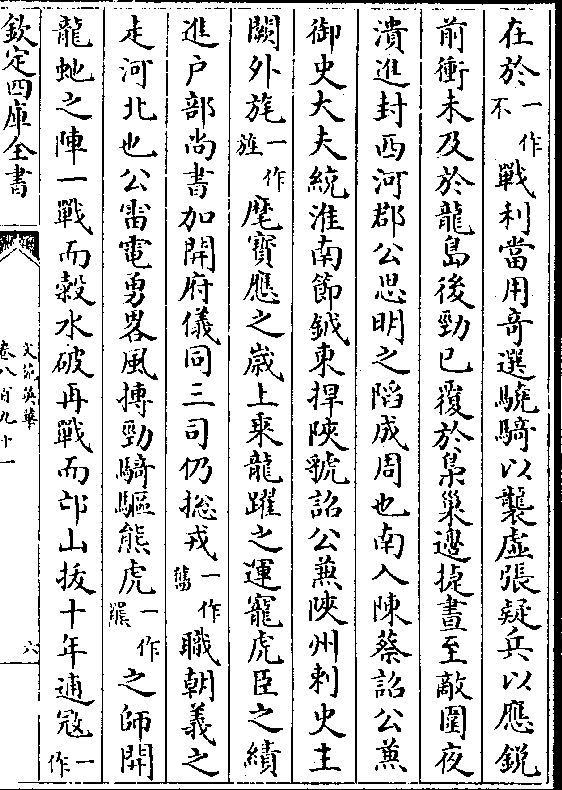 在於一作不戰利當用奇選驍騎以襲虛張疑兵以應鋭
前衝未及於龍島後勁已覆於梟巢邊捷晝至敵圍夜
潰進封西河郡公思明之䧟成周也南入陳蔡詔公兼
御史大夫統淮南節鉞東捍陜虢詔公兼陜州刺史主
闕外旄一作旌麾寳應之歳上乘龍躍之運寵虎臣之績
進户部尚書加開府儀同三司仍揔戎一作舊職朝義之
走河北也公雷電勇畧風搏勁騎驅熊虎一作羆之師開
龍虵之陣一戰而穀水破再戰而邙山拔十年逋冦一作
欽定四庫全書
文苑英華
卷八百九十一
六